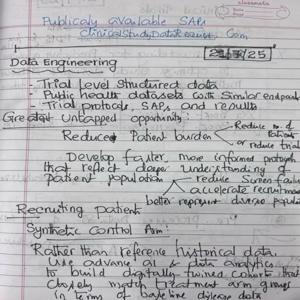 Publicaly available SAPs
ClinicalStudyDataRequest. Com
classmate
25
Data Engineering
- Trial Level Structured data
- Public health datasets with Similar endpoints
- Trial protocols, SAPs, and results
Greatest Untapped opportunity:
Reduced Patient burden
Reduce no. of
Patients
or reduce trial
Develop faster, more informed protocols
that reflect deeper understanding of
patient population
reduce Screen failure
accelerate recruitment
better represent diverse population
Recruiting patient
Synthetic Control Arm:
Rather than reference historical data,
use advance ai & data analytics
to build digitally twined cohorts that
closely match treatment arm groups
in terms of baseline disease data